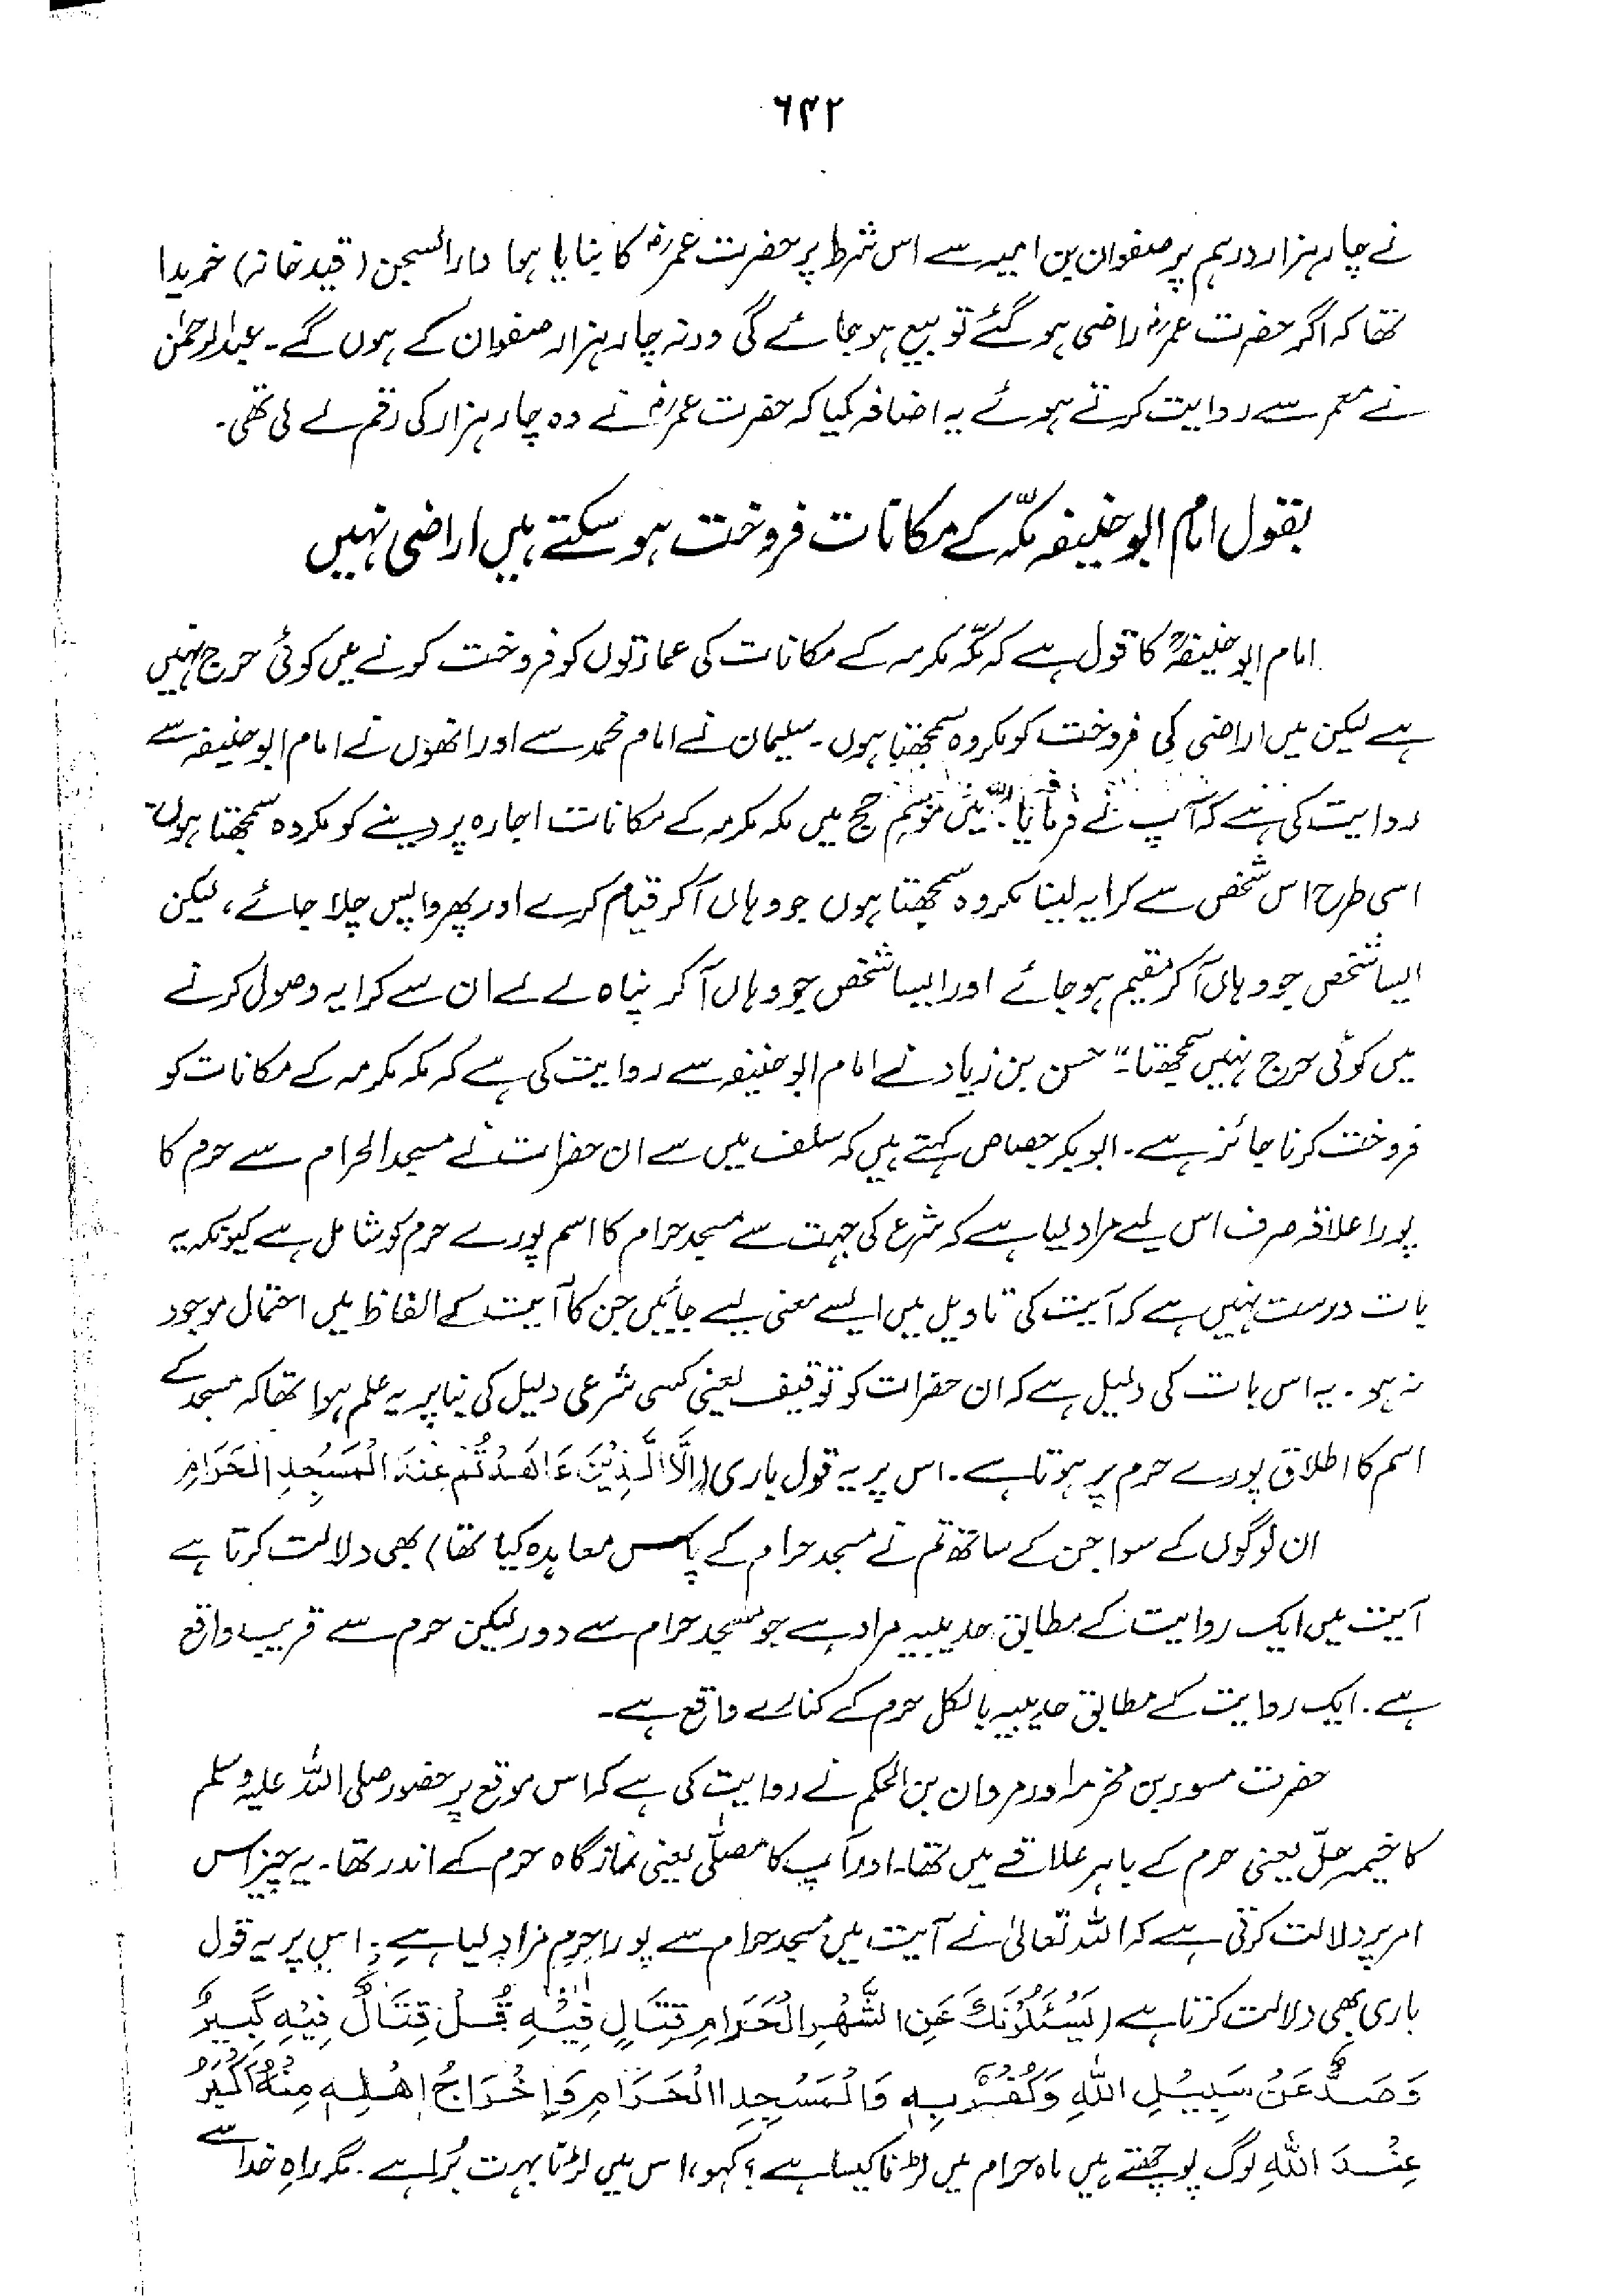 ٦٤٢
نے چار ہزار درہم پر صفوان بن امیہ سے اس شرط پر حضرت عمرؓ کا بنایا ہوا دارالسجن (قید خانہ) خریدا
تھا کہ اگر حضرت عمرؓ راضی ہو گئے تو بیع ہو جائے گی ورنہ چار ہزار صفوان کے ہوں گے۔ عبدالرحمٰن
نے معمر سے روایت کرتے ہوئے یہ اضافہ کیا کہ حضرت عمرؓ نے وہ چار ہزار کی رقم لے لی تھی۔
بقول امام ابوحنیفہ مکّہ کے مکانات فروخت ہو سکتے ہیں اراضی نہیں
امام ابوحنیفہؒ کا قول ہے کہ مکّہ مکرمہ کے مکانات کی عمارتوں کو فروخت کرنے میں کوئی حرج نہیں
ہے لیکن میں اراضی کی فروخت کو مکروہ سمجھتا ہوں۔ سلیمان نے امام محمد سے اور انھوں نے امام ابوحنیفہ سے
روایت کی ہے کہ آپ نے فرمایا: "میں موسم حج میں مکہ مکرمہ کے مکانات اجارہ پر دینے کو مکروہ سمجھتا ہوں"
اسی طرح اس شخص سے کرایہ لینا مکروہ سمجھتا ہوں جو وہاں آکر قیام کرے اور پھر واپس چلا جائے، لیکن
ایسا شخص جو وہاں آکر مقیم ہو جائے اور ایسا شخص جو وہاں آکر پناہ لے لے ان سے کرایہ وصول کرنے
میں کوئی حرج نہیں سمجھتا۔" حسن بن زیاد نے امام ابوحنیفہ سے روایت کی ہے کہ مکہ مکرمہ کے مکانات کو
فروخت کرنا جائز ہے۔ ابوبکر جصاص کہتے ہیں کہ سلف میں سے ان حضرات نے مسجد الحرام سے حرم کا
پورا علاقہ صرف اس لیے مراد لیا ہے کہ شرع کی جہت سے مسجد حرام کا اسم پورے حرم کو شامل ہے کیونکہ یہ
بات درست نہیں ہے کہ آیت کی تاویل میں ایسے معنی لیے جائیں جن کا آیت کے الفاظ میں احتمال موجود
نہ ہو۔ یہ اس بات کی دلیل ہے کہ ان حضرات کو توقیف یعنی کسی شرعی دلیل کی بنا پر یہ علم ہوا تھا کہ مسجد کے
اسم کا اطلاق پورے حرم پر ہوتا ہے۔ اس پر یہ قول باری (اِلَّا الَّذِیْنَ عَاهَدْتُّمْ عِنْدَ الْمَسْجِدِ الْحَرَامِ
ان لوگوں کے سوا جن کے ساتھ تم نے مسجد حرام کے پاس معاہدہ کیا تھا) بھی دلالت کرتا ہے
آیت میں ایک روایت کے مطابق حدیبیہ مراد ہے جو مسجد حرام سے دور لیکن حرم سے قریب واقع
ہے۔ ایک روایت کے مطابق حدیبیہ بالکل حرم کے کنارے واقع ہے۔
حضرت مسور بن مخرمہ اور مروان بن الحکم نے روایت کی ہے کہ اس موقع پر حضور صلی اللہ علیہ وسلم
کا خیمہ حلّ یعنی حرم کے باہر علاقے میں تھا۔ اور آپ کا مصلّٰی یعنی نماز گاہ حرم کے اندر تھا۔ یہ چیز اس
امر پر دلالت کرتی ہے کہ اللہ تعالیٰ نے آیت میں مسجد حرام سے پورا حرم مراد لیا ہے۔ اس پر یہ قول
باری بھی دلالت کرتا ہے (یَسْئَلُوْنَكَ عَنِ الشَّهْرِ الْحَرَامِ قِتَالٍ فِیْهِ قُلْ قِتَالٌ فِیْهِ كَبِیْرٌ
وَصَدٌّ عَنْ سَبِیْلِ اللّٰهِ وَكُفْرٌ بِهٖ وَالْمَسْجِدِ الْحَرَامِ وَاِخْرَاجُ اَهْلِهٖ مِنْهُ اَكْبَرُ
عِنْدَ اللّٰهِ لوگ پوچھتے ہیں ماہ حرام میں لڑنا کیسا ہے؟ کہو، اس میں لڑنا بہت بُرا ہے۔ مگر راہِ خدا سے